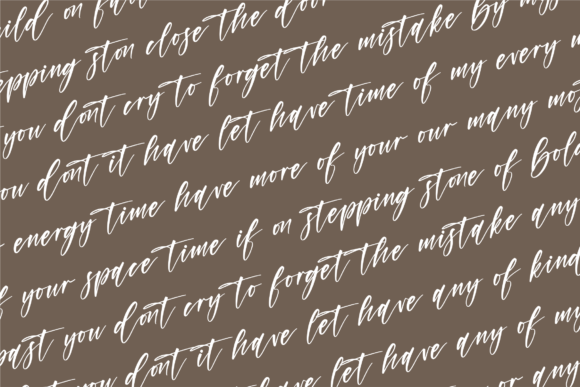 on
stepping ston close the door
you dont cry to forget the mistake by
you dont it have let have time of my every
energy time have more of your our many
of your space time if on stepping stone of Bold
past you dont cry to forget the mistake any
you dont it have let have any of kind
have let have any of my
or any